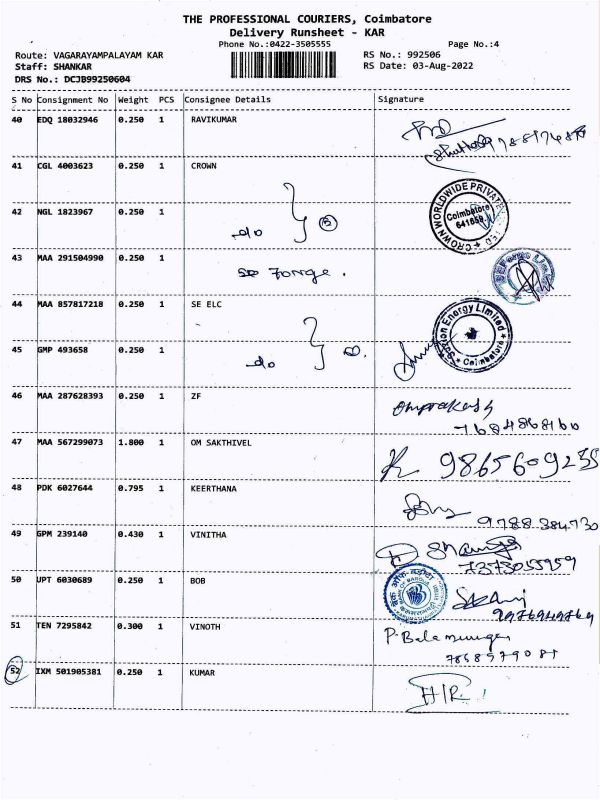 THE PROFESSIONAL COURIERS, Coimbatore
Delivery Runsheet - KAR
Phone No.:0422-3505555 Page No.:4
Route: VAGARAYAMPALAYAM KAR RS No.: 992506
Staff: SHANKAR RS Date: 03-Aug-2022
DRS No.: DCJB99250604
S No Consignment No Weight PCS Consignee Details Signature
40 EDQ 18032946 0.250 1 RAVIKUMAR
41 CGL 4003623 0.250 1 CROWN
CROWN WORLDWIDE PRIVATE
Coimbatore
42 NGL 1823967 0.250 1
do
43 MAA 291504990 0.250 1
44 MAA 857817218 0.250 1 SE ELC
Energy Limited
Coimbatore
45 GMP 493658 0.250 1
do
46 MAA 287628393 0.250 1 ZF Omprakash
7684868160
47 MAA 567299073 1.800 1 OM SAKTHIVEL
9865609235
48 PDK 6027644 0.795 1 KEERTHANA
9788384730
49 GPM 239140 0.430 1 VINITHA
7373055959
50 UPT 6030689 0.250 1 BOB
51 TEN 7295842 0.300 1 VINOTH P. Balamurugan
7868979081
52 IXM 501905381 0.250 1 KUMAR